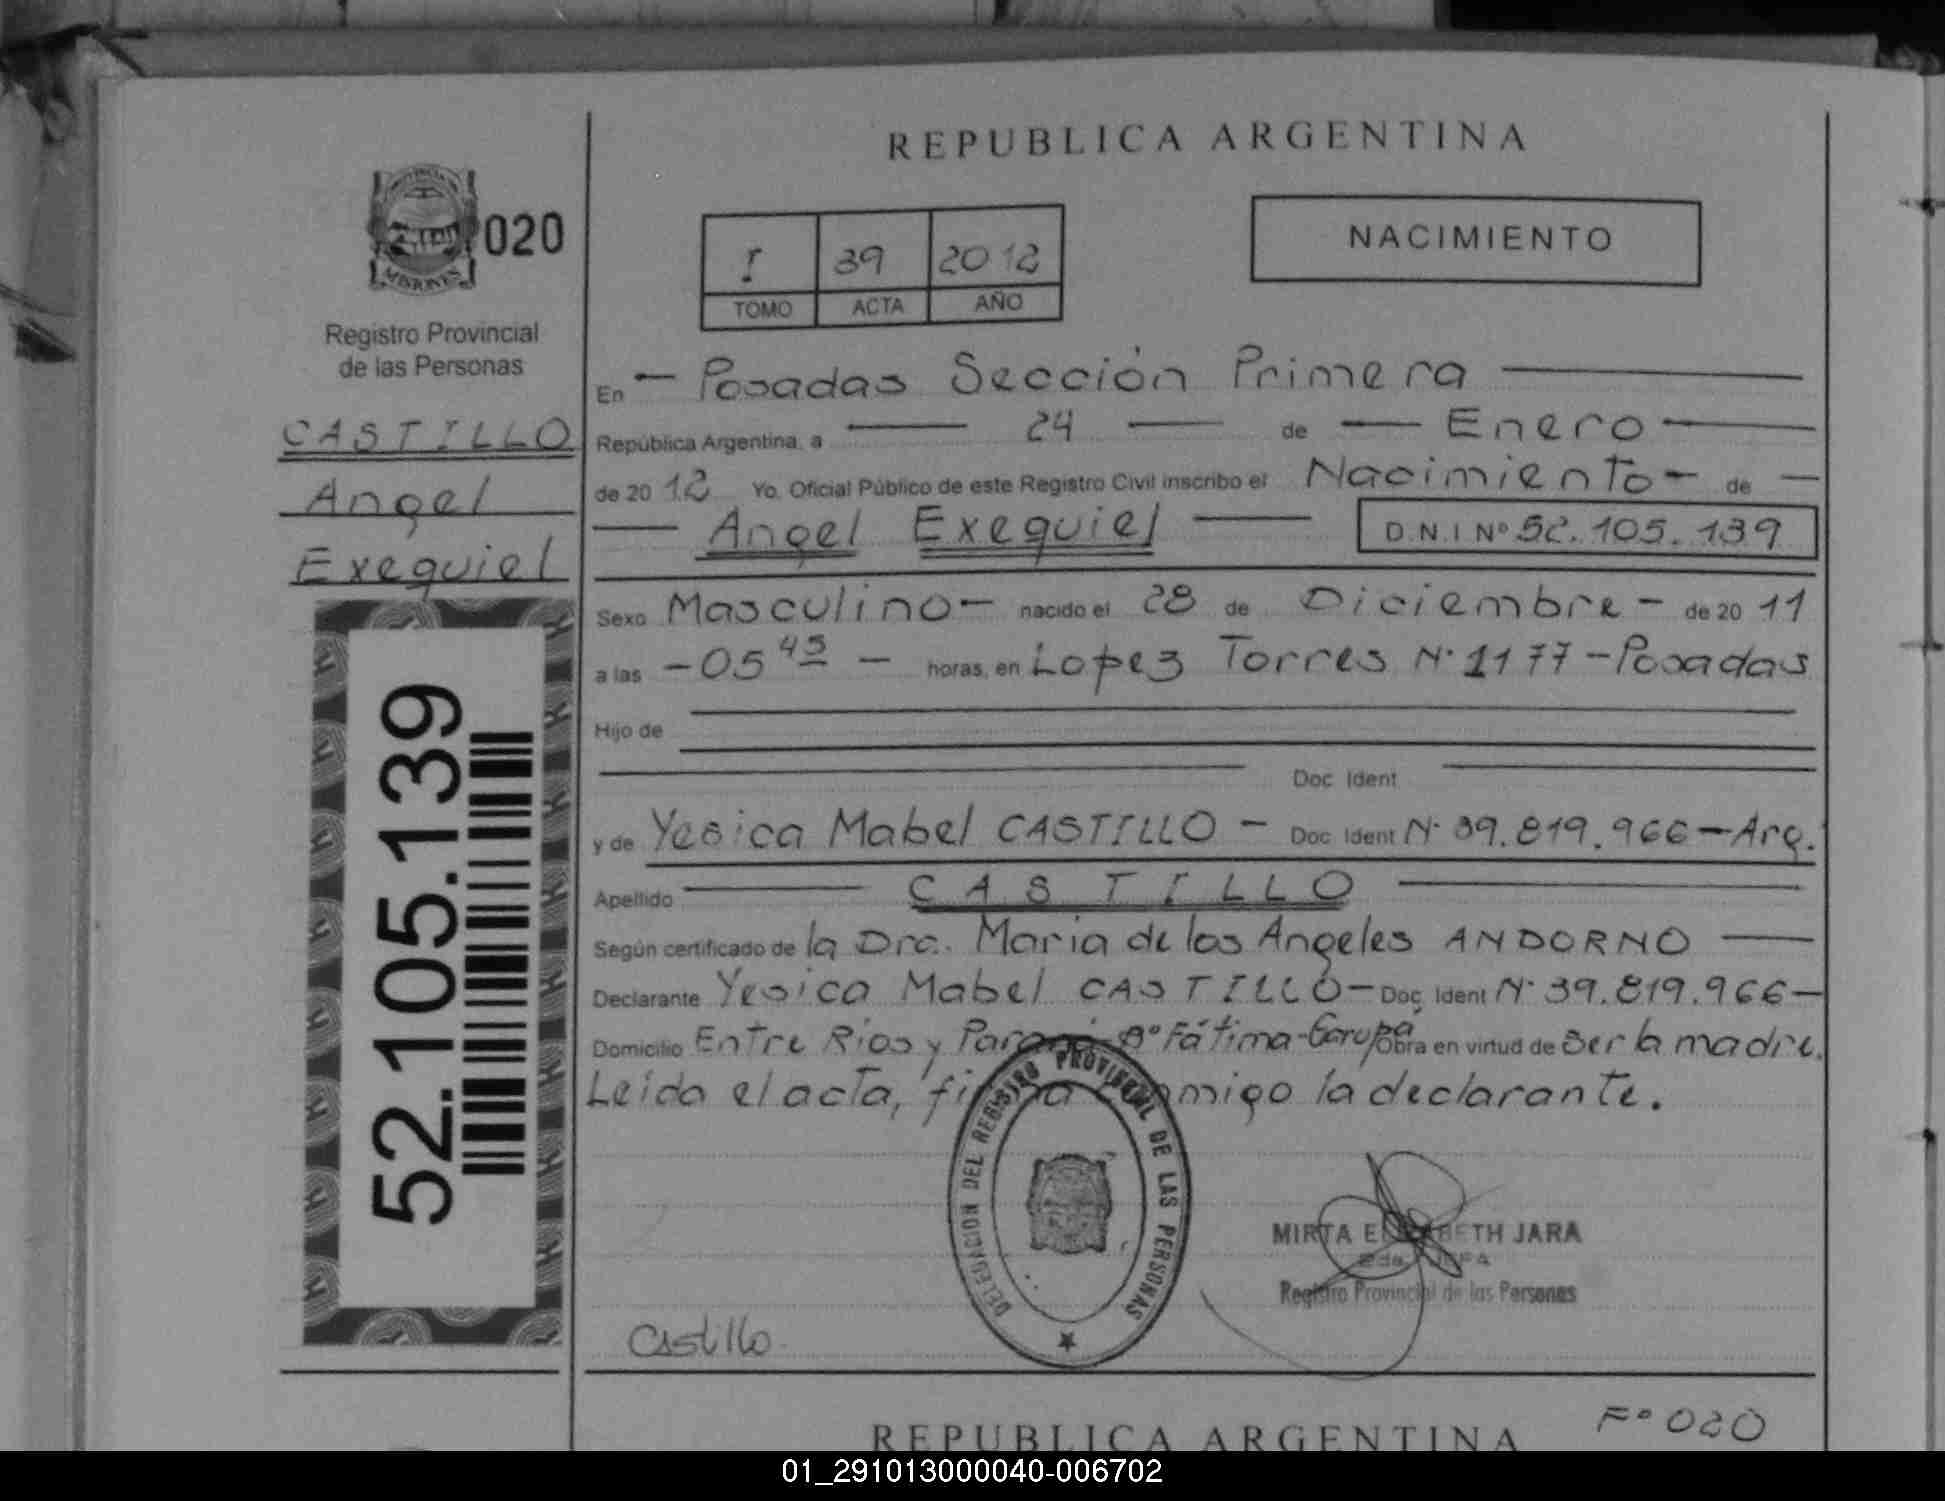 REPUBLICA ARGENTINA
PROVINCIA DE
MISIONES
020
Registro Provincial
de las Personas
CASTILLO
Angel
Exequiel
52.105.139
I 39 2012
TOMO ACTA AÑO
NACIMIENTO
En — Posadas Sección Primera —
República Argentina, a — 24 — de — Enero —
de 2012 Yo, Oficial Público de este Registro Civil inscribo el Nacimiento — de —
— Angel Exequiel — D.N.I Nº 52.105.139
Sexo Masculino — nacido el 28 de Diciembre — de 2011
a las — 05 45 — horas, en Lopez Torres Nº 1177 — Posadas
Hijo de
Doc. Ident
y de Yesica Mabel CASTILLO — Doc. Ident Nº 39.819.966 — Arg.
Apellido — CASTILLO —
Según certificado de la Dra. Maria de los Angeles ANDORNO —
Declarante Yesica Mabel CASTILLO — Doc. Ident Nº 39.819.966 —
Domicilio Entre Rios y Paraná Bº Fátima - Garupá Obra en virtud de ser la madre.
Leída el acta, firma conmigo la declarante.
DELEGACION DEL REGISTRO PROVINCIAL DE LAS PERSONAS
MIRTA ELIZABETH JARA
Registro Provincial de las Personas
Castillo
Fº 020
REPUBLICA ARGENTINA
01_291013000040-006702